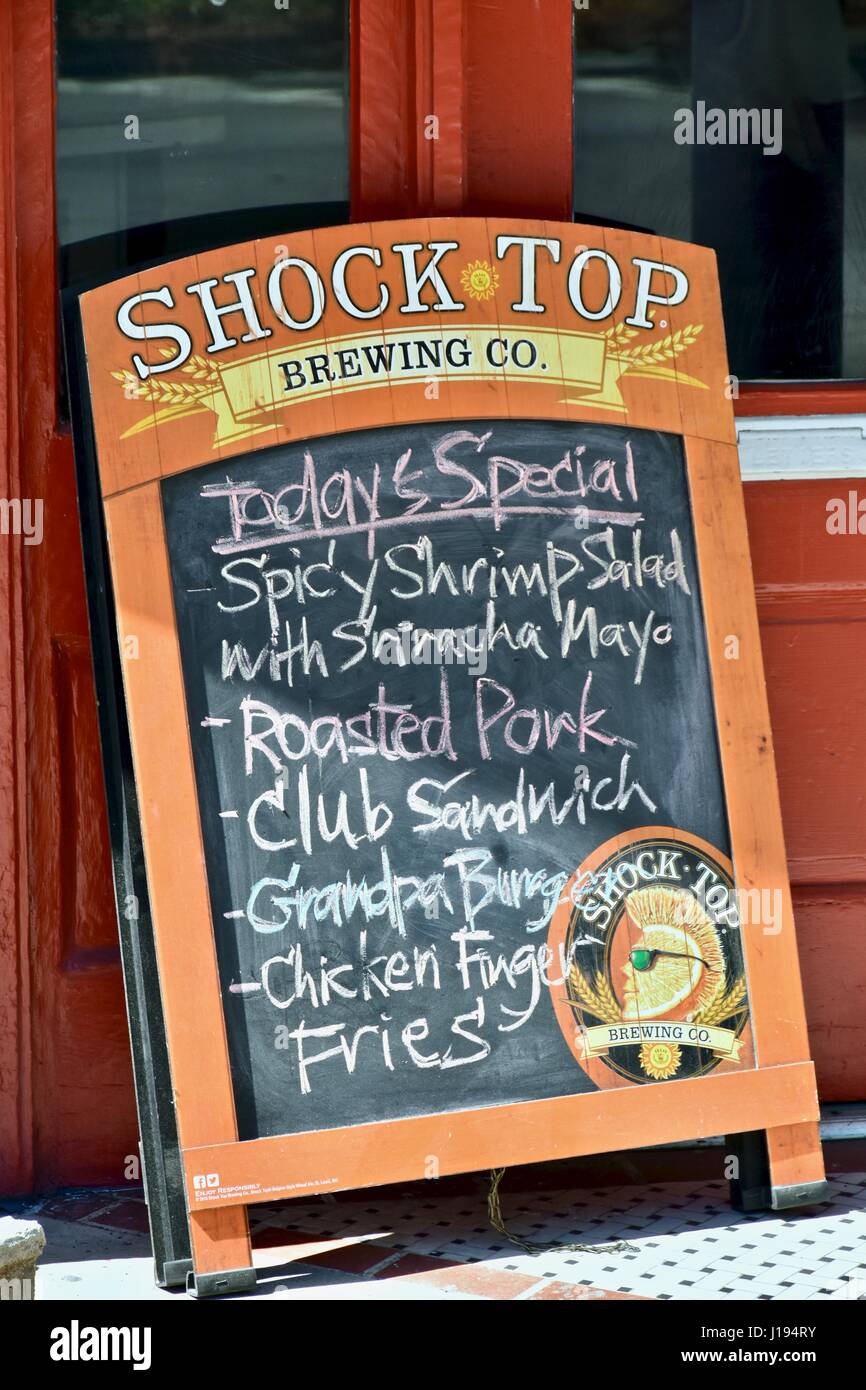 SHOCK TOP
BREWING CO.
Today's Special
- Spicy Shrimp Salad
with Sriracha Mayo
- Roasted Pork
- Club Sandwich
- Grandpa Burger
- Chicken Finger
Fries
SHOCK TOP
BREWING CO.
ENJOY RESPONSIBLY
alamy
Image ID: J194RY
www.alamy.com